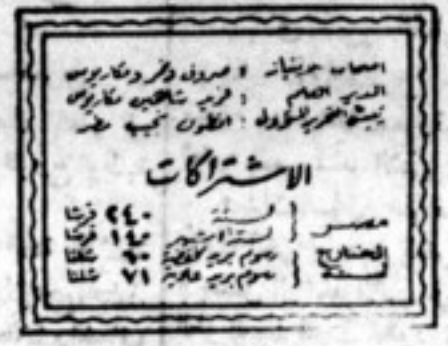 اصحاب امتياز : صروف ونمر ومكاريوس
المدير العام : فريد شاهين مكاريوس
رئيس التحرير المسؤول : انطون نجيب مطر
الاشتراكات
مصر لسنة ٢٤٠ قرشا
لستة اشهر ١٤٠ قرشا
الخارج رسوم بريد ٦٠ شلنا
لسنة رسوم بريد عادية ٧١ شلنا